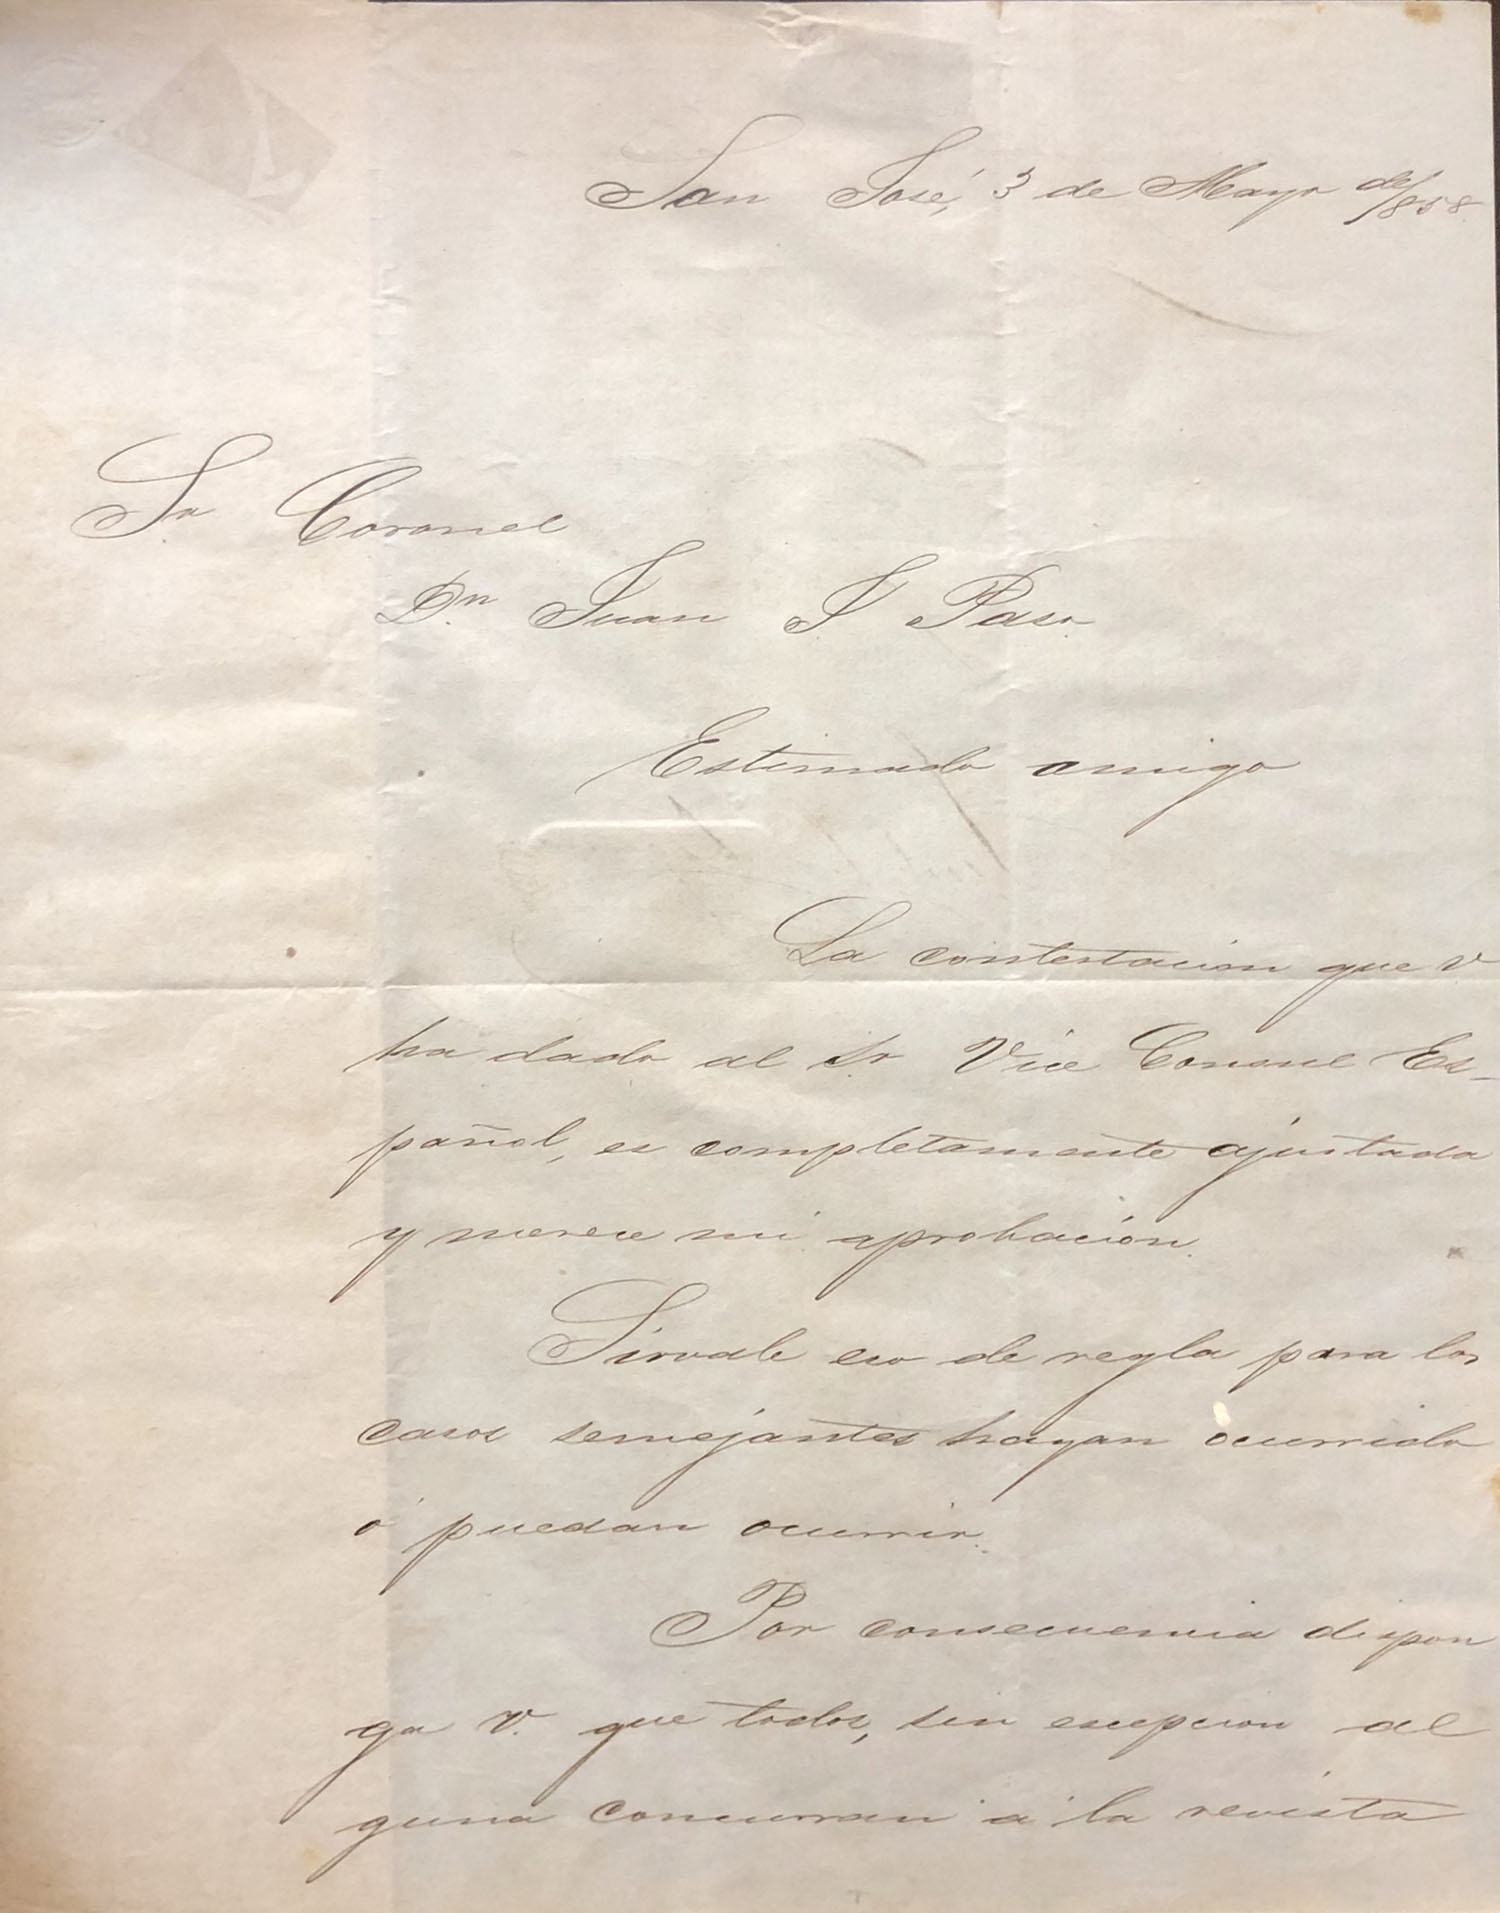 San José, 3 de Mayo de/858.
Sr Coronel
Dn. Juan J Paso.
Estimado amigo
La contestacion que V
ha dado al Sr Vice Consul Es-
pañol, es completamente ajustada
y merece mi aprobación.
Sirvale eso de regla para los
casos semejantes hayan ocurrido
ó puedan ocurrir.
Por consecuencia dispon
ga V. que todos, sin escepcion al
guna concurran á la revista